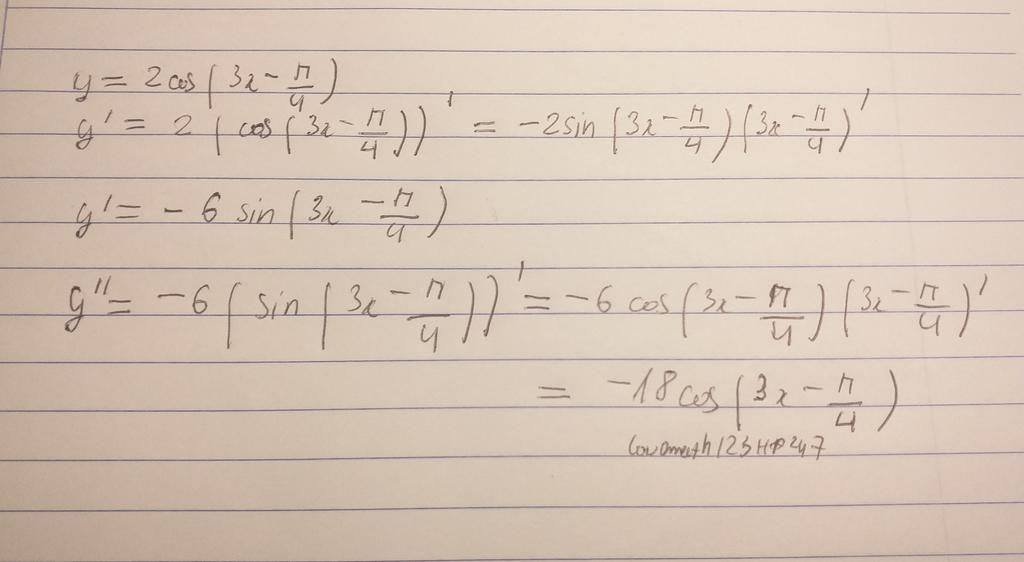 y = 2cos(3x - π/4)
y' = 2(cos(3x - π/4))' = -2sin(3x - π/4)(3x - π/4)'
y' = -6 sin(3x - π/4)
y'' = -6(sin(3x - π/4))' = -6 cos(3x - π/4)(3x - π/4)'
= -18cos(3x - π/4)